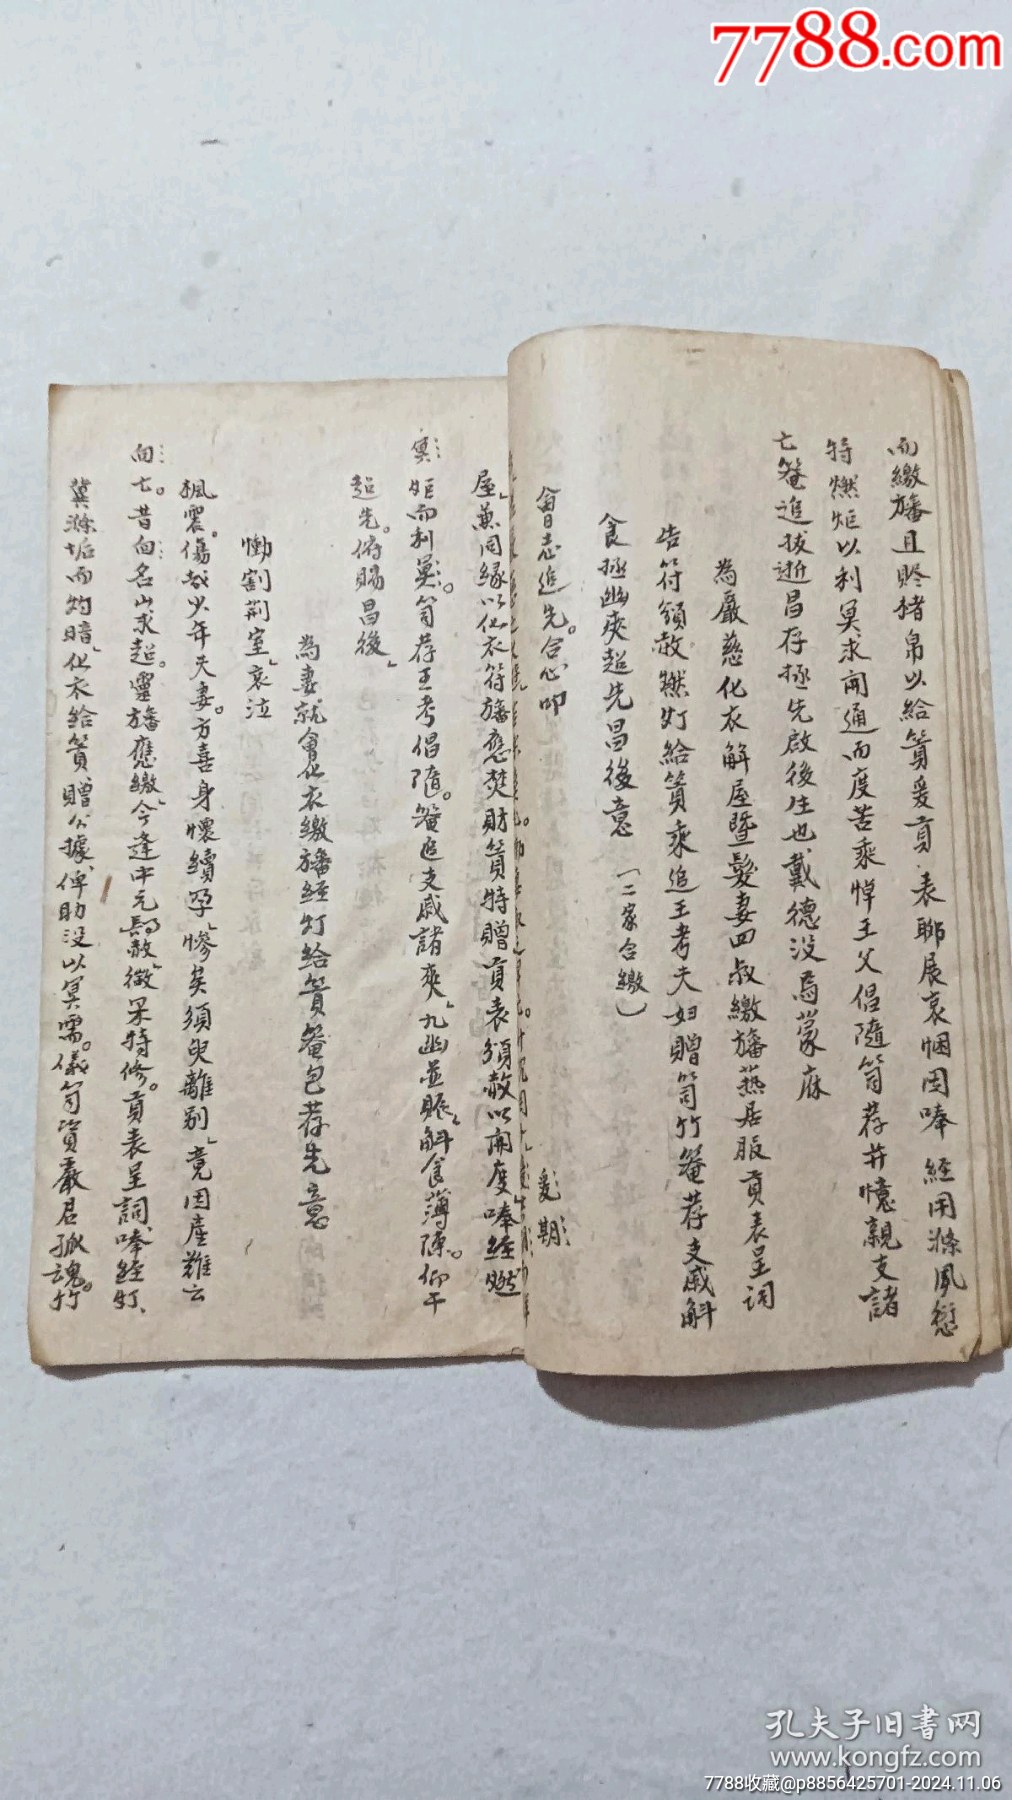 7788.com
而繳旛且賒楮帛以給簣爰貢表聊展哀悃因唪經用滌夙愆
特燃炬以利冥求開通而度苦乘悼王父倡隨笥荐并憶親支諸
亡篭追拔逝昌存拯先啟後生也戴德沒焉蒙庥
為嚴慈化衣解屋暨髮妻四叔繳旛燕居服貢表呈詞
告符領赦燃灯給簣乘追王考夫妇贈笥竹篭荐支戚斛
食拯幽爽超先昌後意（二家合繳）
會日志追先。合心叩
爰期
屋兼同緣以化衣符旛應焚財簣特贈貢表須赦以開度唪經燃
炬而利冥。笥荐王考倡隨。篭追支戚諸爽九幽並賑斛食薄陳。仰干
超先。俯賜昌後
為妻就會化衣繳旛經灯給簣篭包荐先意
慟割荊室哀泣
楓震。傷哉少年夫妻。方喜身懷續孕慘矣須臾離別竟因產難云
亡。昔向名山求超。靈旛應繳今逢中元赦徵呆特修。貢表呈詞唪經灯
冀滌垢而灼暗化衣給簣贈公據俾助沒以冥需。儀笥資嚴君孤魂。竹
孔夫子旧書网
www.kongfz.com
7788收藏@p8856425701-2024.11.06